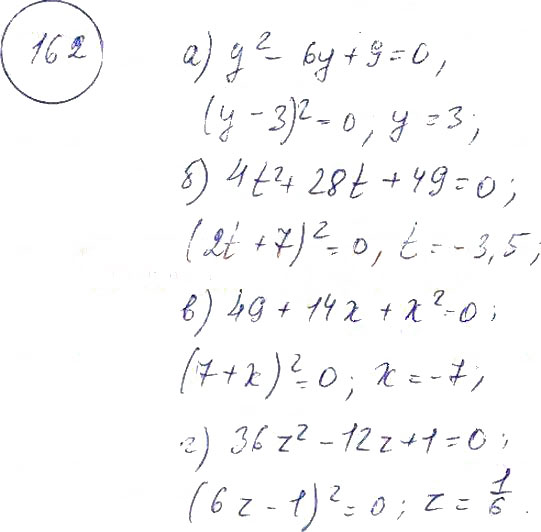 162
а) y² - 6y + 9 = 0,
(y - 3)² = 0; y = 3;
б) 4t² + 28t + 49 = 0;
(2t + 7)² = 0, t = -3,5;
в) 49 + 14x + x² = 0;
(7 + x)² = 0; x = -7;
г) 36z² - 12z + 1 = 0;
(6z - 1)² = 0; z = 1/6.